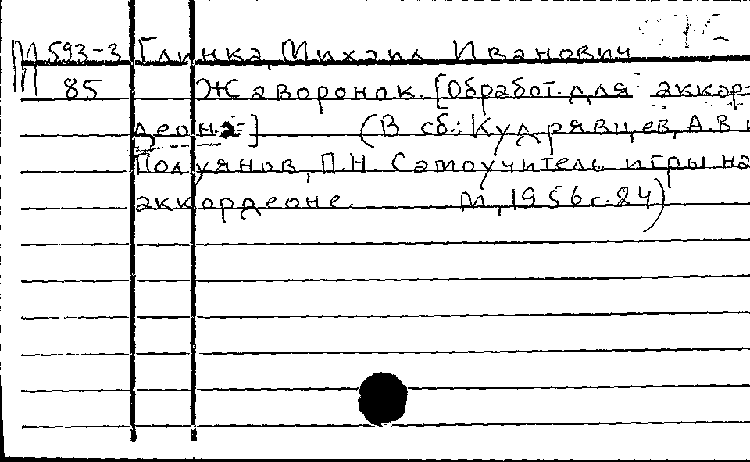 М 593-3 Глинка, Михаил Иванович
85 Жаворонок. [Обработ. для аккор-
деона] (В сб.: Кудрявцев, А.В и
Полуянов, П.Н. Самоучитель игры на
аккордеоне. М, 1956 с. 84)